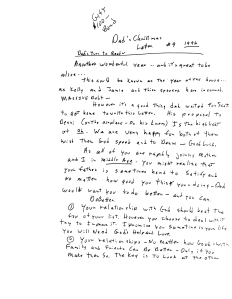 Gift
from
Dad's Christmas
Letter #9 1992
Dad's Turn to Reads
Another Wonderful Year -- and it's great to be
alive...
This could be known as the year of the house...
as Kelly and Jamie and their spouses have incurred
MASSIVE Debt --
However it's a good thing Dad waited for Text
to get home to write this letter. His proposal to
Denni (in the airplane - Do his Learn) Is the highlight
at 9h - We are very happy for both of them
wish them God speed and to Drew -- Good Luck.
As all of you are rapidly joining Mother
and I in Middle Age - you might realize that
your father is sometimes hard to Satisfy and
no matter how good you think you're doing - Dad
would want you to do better -- but you can
Do Better.
① Your relationship with God should head the
top of your list. However you choose to deal with it
try to Improve it. I promise you Sometime in your life
you will Need God's Help and Love.
② Your relationships - No matter how good with
Family and Friends Can Be Better - Only if you
Make them So. The key is to Look at the other